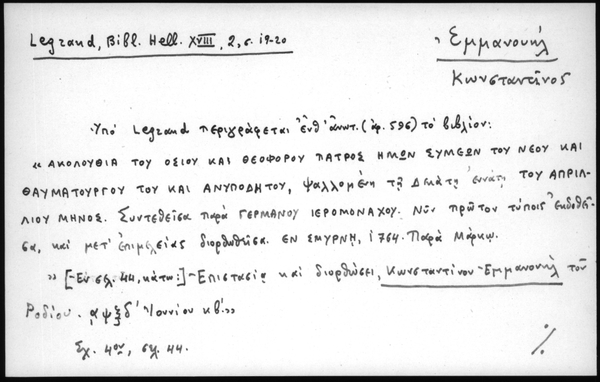 Legrand, Bibl. Hell. XVIII, 2, σ. 19-20
Ἐμμανουὴλ
Κωνσταντῖνος
Ὑπὸ Legrand περιγράφεται ἐνθ' ἀνωτ. (ἀρ. 596) τὸ βιβλίον:
« ΑΚΟΛΟΥΘΙΑ ΤΟΥ ΟΣΙΟΥ ΚΑΙ ΘΕΟΦΟΡΟΥ ΠΑΤΡΟΣ ΗΜΩΝ ΣΥΜΕΩΝ ΤΟΥ ΝΕΟΥ ΚΑΙ
ΘΑΥΜΑΤΟΥΡΓΟΥ ΤΟΥ ΚΑΙ ΑΝΥΠΟΔΗΤΟΥ, ψαλλομένη τῇ Δεκάτῃ ἐννάτῃ ΤΟΥ ΑΠΡΙΛ-
ΛΙΟΥ ΜΗΝΟΣ. Συντεθεῖσα παρὰ ΓΕΡΜΑΝΟΥ ΙΕΡΟΜΟΝΑΧΟΥ. Νῦν πρῶτον τύποις ἐκδοθεῖ-
σα, καὶ μετ' ἐπιμελείας διορθωθῆσα. ΕΝ ΣΜΥΡΝΗ, 1764. Παρὰ Μάρκῳ.
» [-Ἐν σελ. 44, κάτω:] -Ἐπιστασίᾳ καὶ διορθώσει, Κωνσταντίνου Ἐμμανουὴλ τοῦ
Ῥοδίου. αψξδ' Ἰουνίου κβ'.»
Σχ. 4ον, σελ. 44.
./.